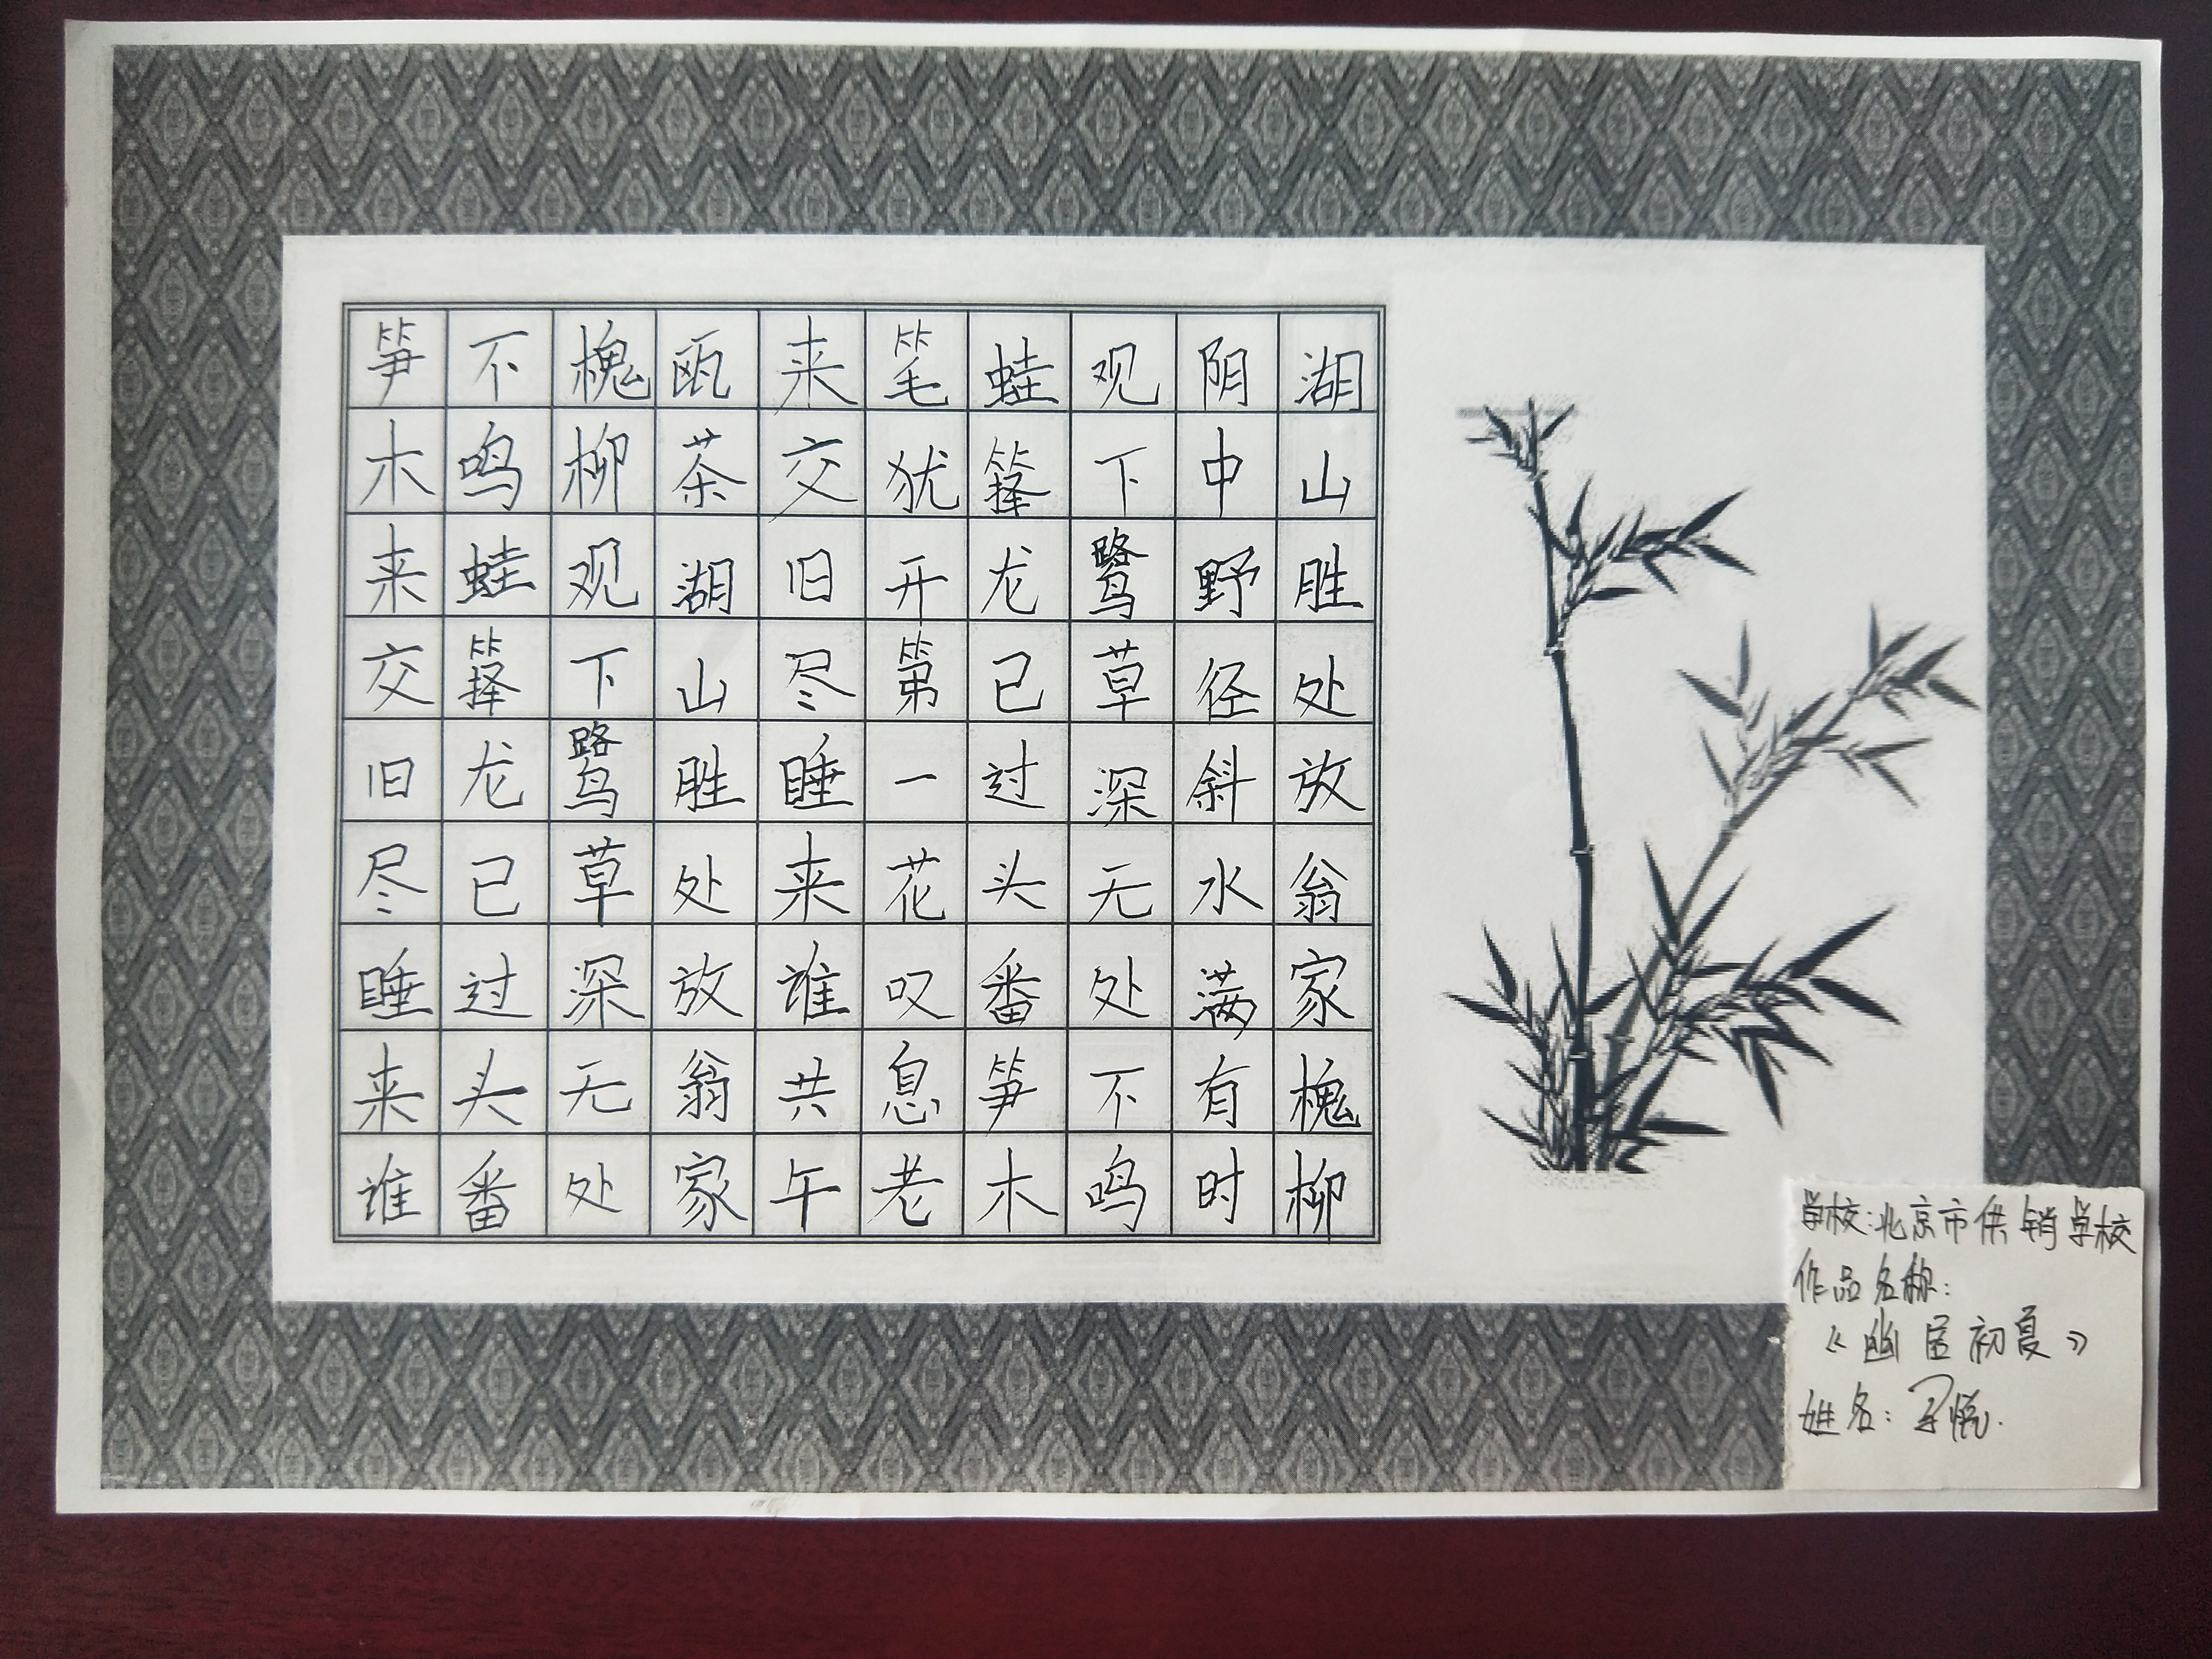 湖山胜处放翁家槐柳
阴中野径斜水满有时
观下鹭草深无处不鸣
蛙箨龙已过头番笋木
笔犹开第一花叹息老
来交旧尽睡来谁共午
瓯茶湖山胜处放翁家
槐柳观下鹭草深无处
不鸣蛙箨龙已过头番
笋木来交旧尽睡来谁
学校:北京市供销学校
作品名称:
《幽居初夏》
姓名: